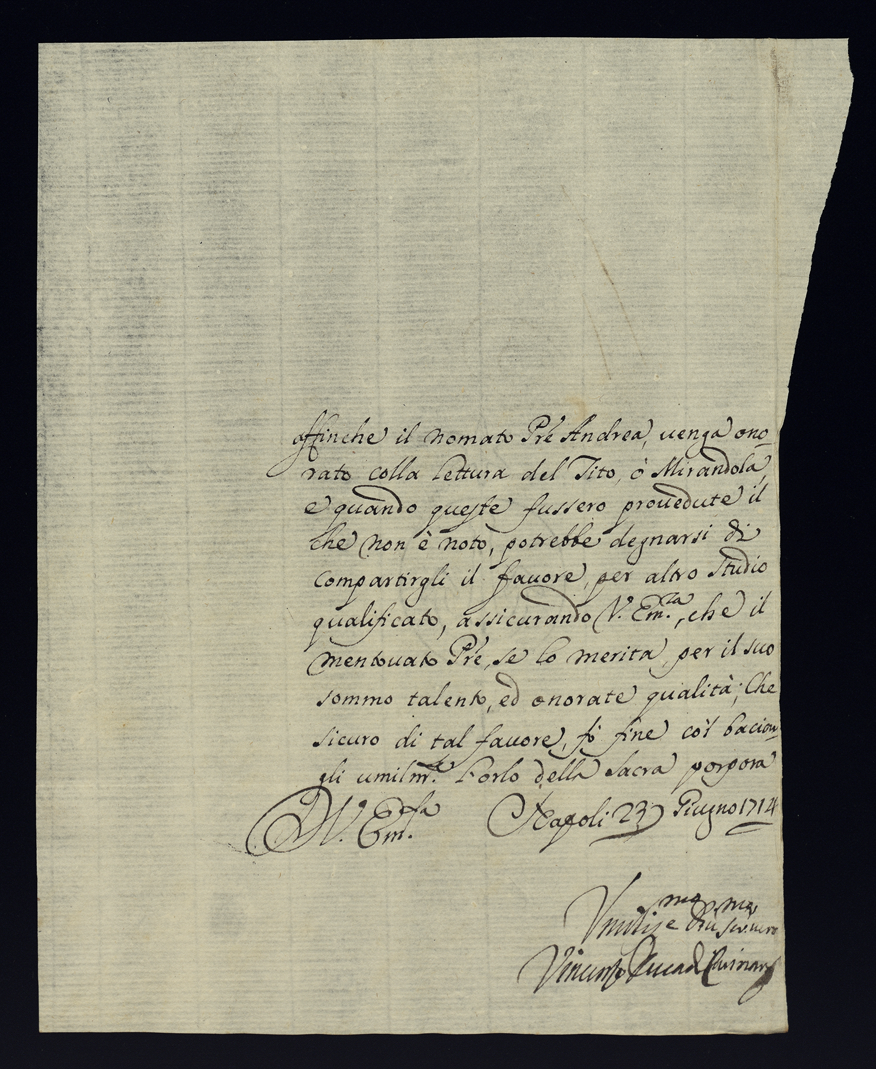 affinche il nomato Pre Andrea, uenga ono-
rato colla lettura del Tito, ò Mirandola,
e quando queste fussero prouedute il
che non è noto, potrebbe degnarsi di
compartirgli il fauore, per altro studio
qualificato, assicurando V. Em.za, che il
mentouato Pre, se lo merita, per il suo
sommo talento, ed onorate qualità; Che
sicuro di tal fauore, fò fine co'l bacian-
gli umilm.te l'orlo della Sacra porpora
D V. Em.za Napoli 23 Giugno 1714